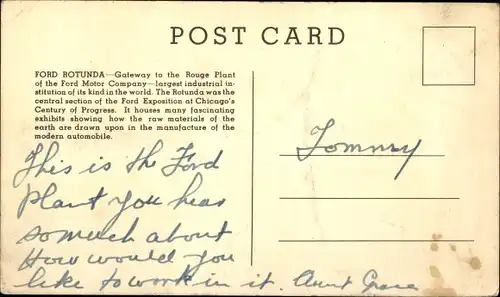 POST CARD
FORD ROTUNDA—Gateway to the Rouge Plant
of the Ford Motor Company—largest industrial in-
stitution of its kind in the world. The Rotunda was the
central section of the Ford Exposition at Chicago's
Century of Progress. It houses many fascinating
exhibits showing how the raw materials of the
earth are drawn upon in the manufacture of the
modern automobile.
This is the Ford
Plant you hear
so much about
How would you
like to work in it. Aunt Grace
Tommy